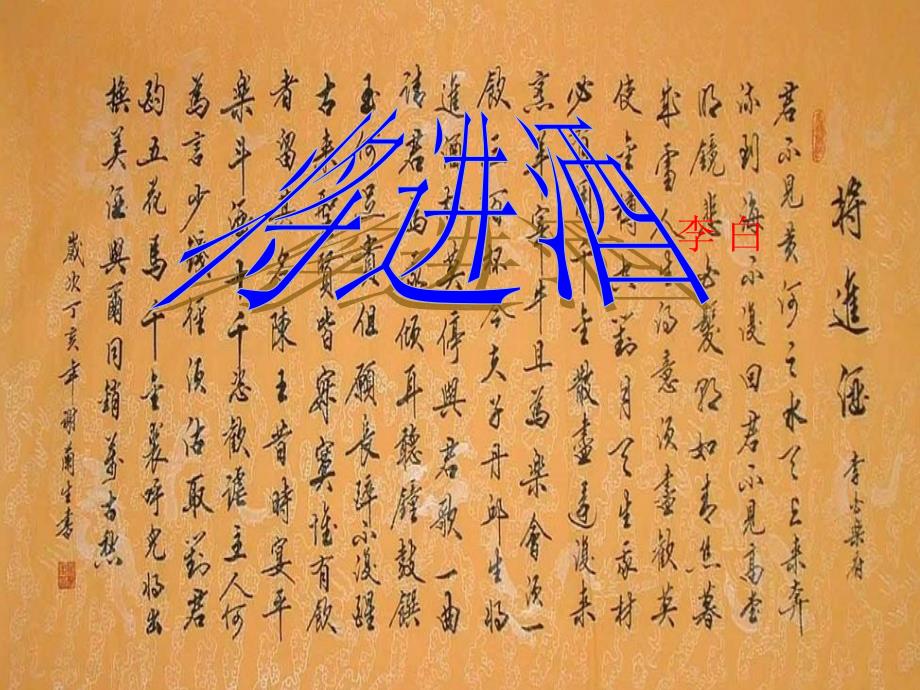 将进酒
李白
將進酒
李白樂府
君不見黃河之水天上來奔
流到海不復回君不見高堂
明鏡悲白髮朝如青絲暮
成雪人生得意須盡歡莫
使金樽空對月天生我材
必有用千金散盡還復來
烹羊宰牛且為樂會須一
飲三百杯岑夫子丹邱生將
進酒君莫停與君歌一曲
請君為我傾耳聽鐘鼓饌
玉何足貴但願長醉不復醒
古來聖賢皆寂寞惟有飲
者留其名陳王昔時宴平
樂斗酒十千恣歡謔主人何
為言少錢徑須沽取對君
酌五花馬千金裘呼兒將出
換美酒與爾同銷萬古愁
歲次丁亥年謝生書